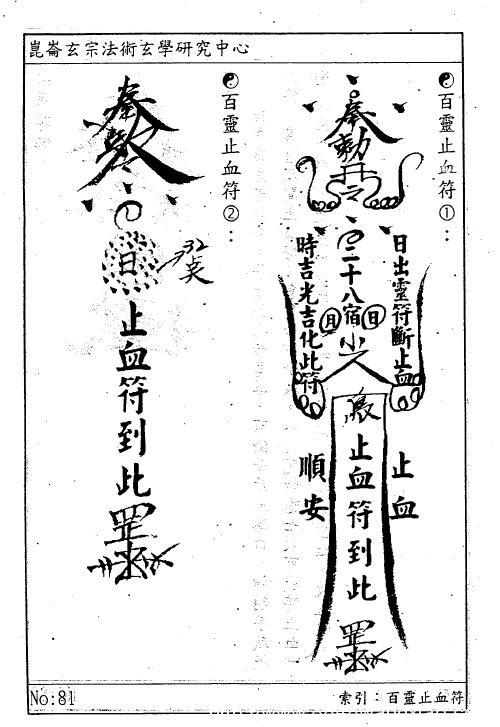 崑崙玄宗法術玄學研究中心
百靈止血符①：
奉
勅
令
二十八宿
日
月
日出靈符斷止血
時吉光吉化此符
止血符到此
罡
止血
順安
百靈止血符②：
奉
勅
令
日
止血符到此
罡
No:81
索引：百靈止血符